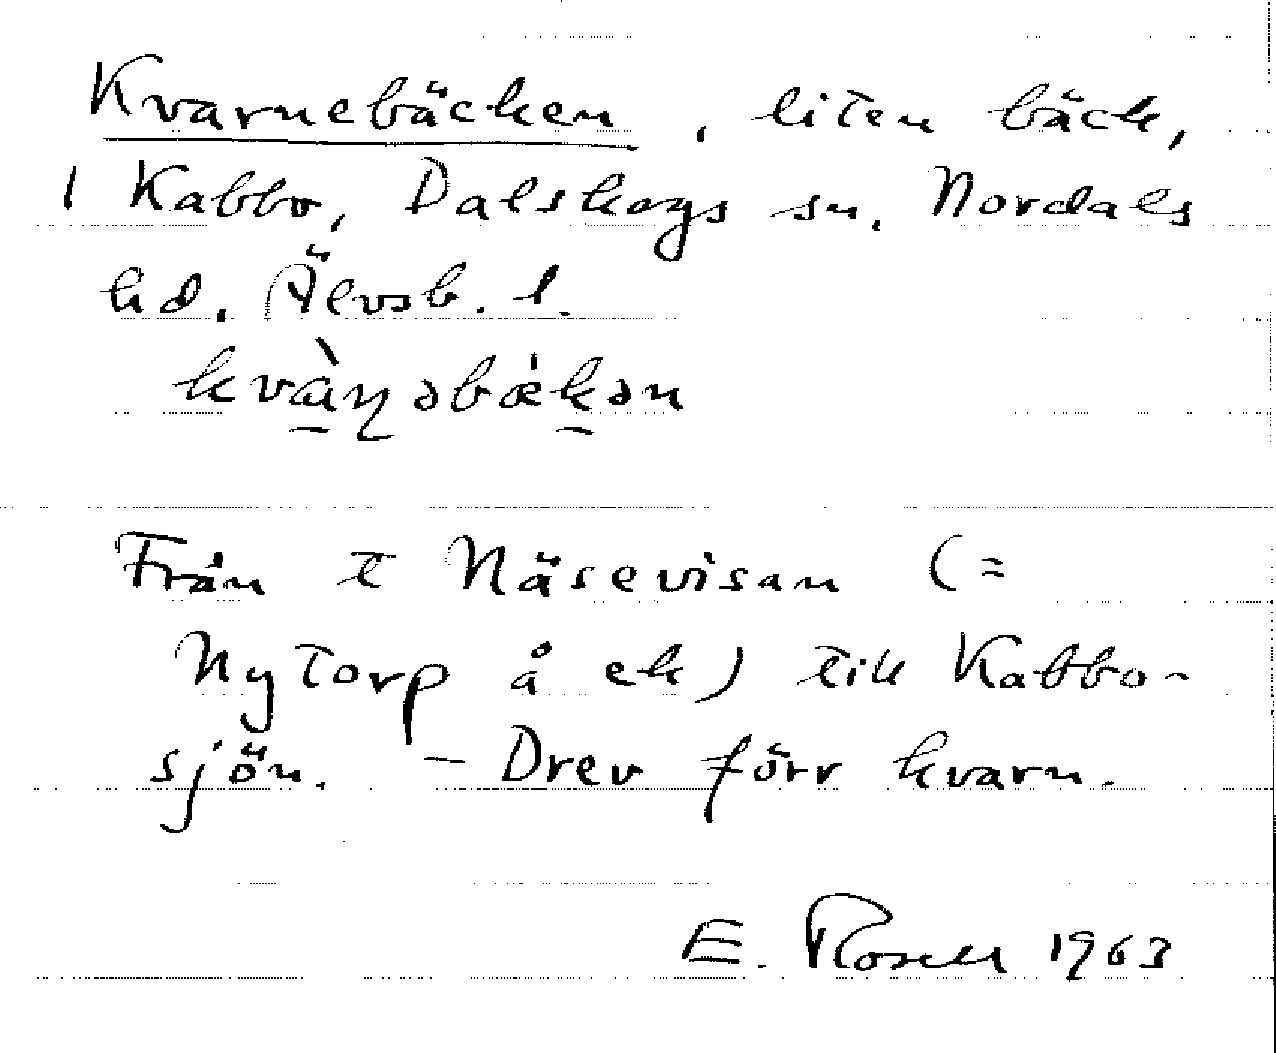 Kvarnebäcken, liten bäck,
i Kabbo, Dalskogs sn, Nordals
hd, Älvsb. l.
kvàɳəbækən
Från t Näsevisan (=
Nytorp å ek) till Kabbo-
sjön. – Drev förr kvarn.
E. Rosell 1963